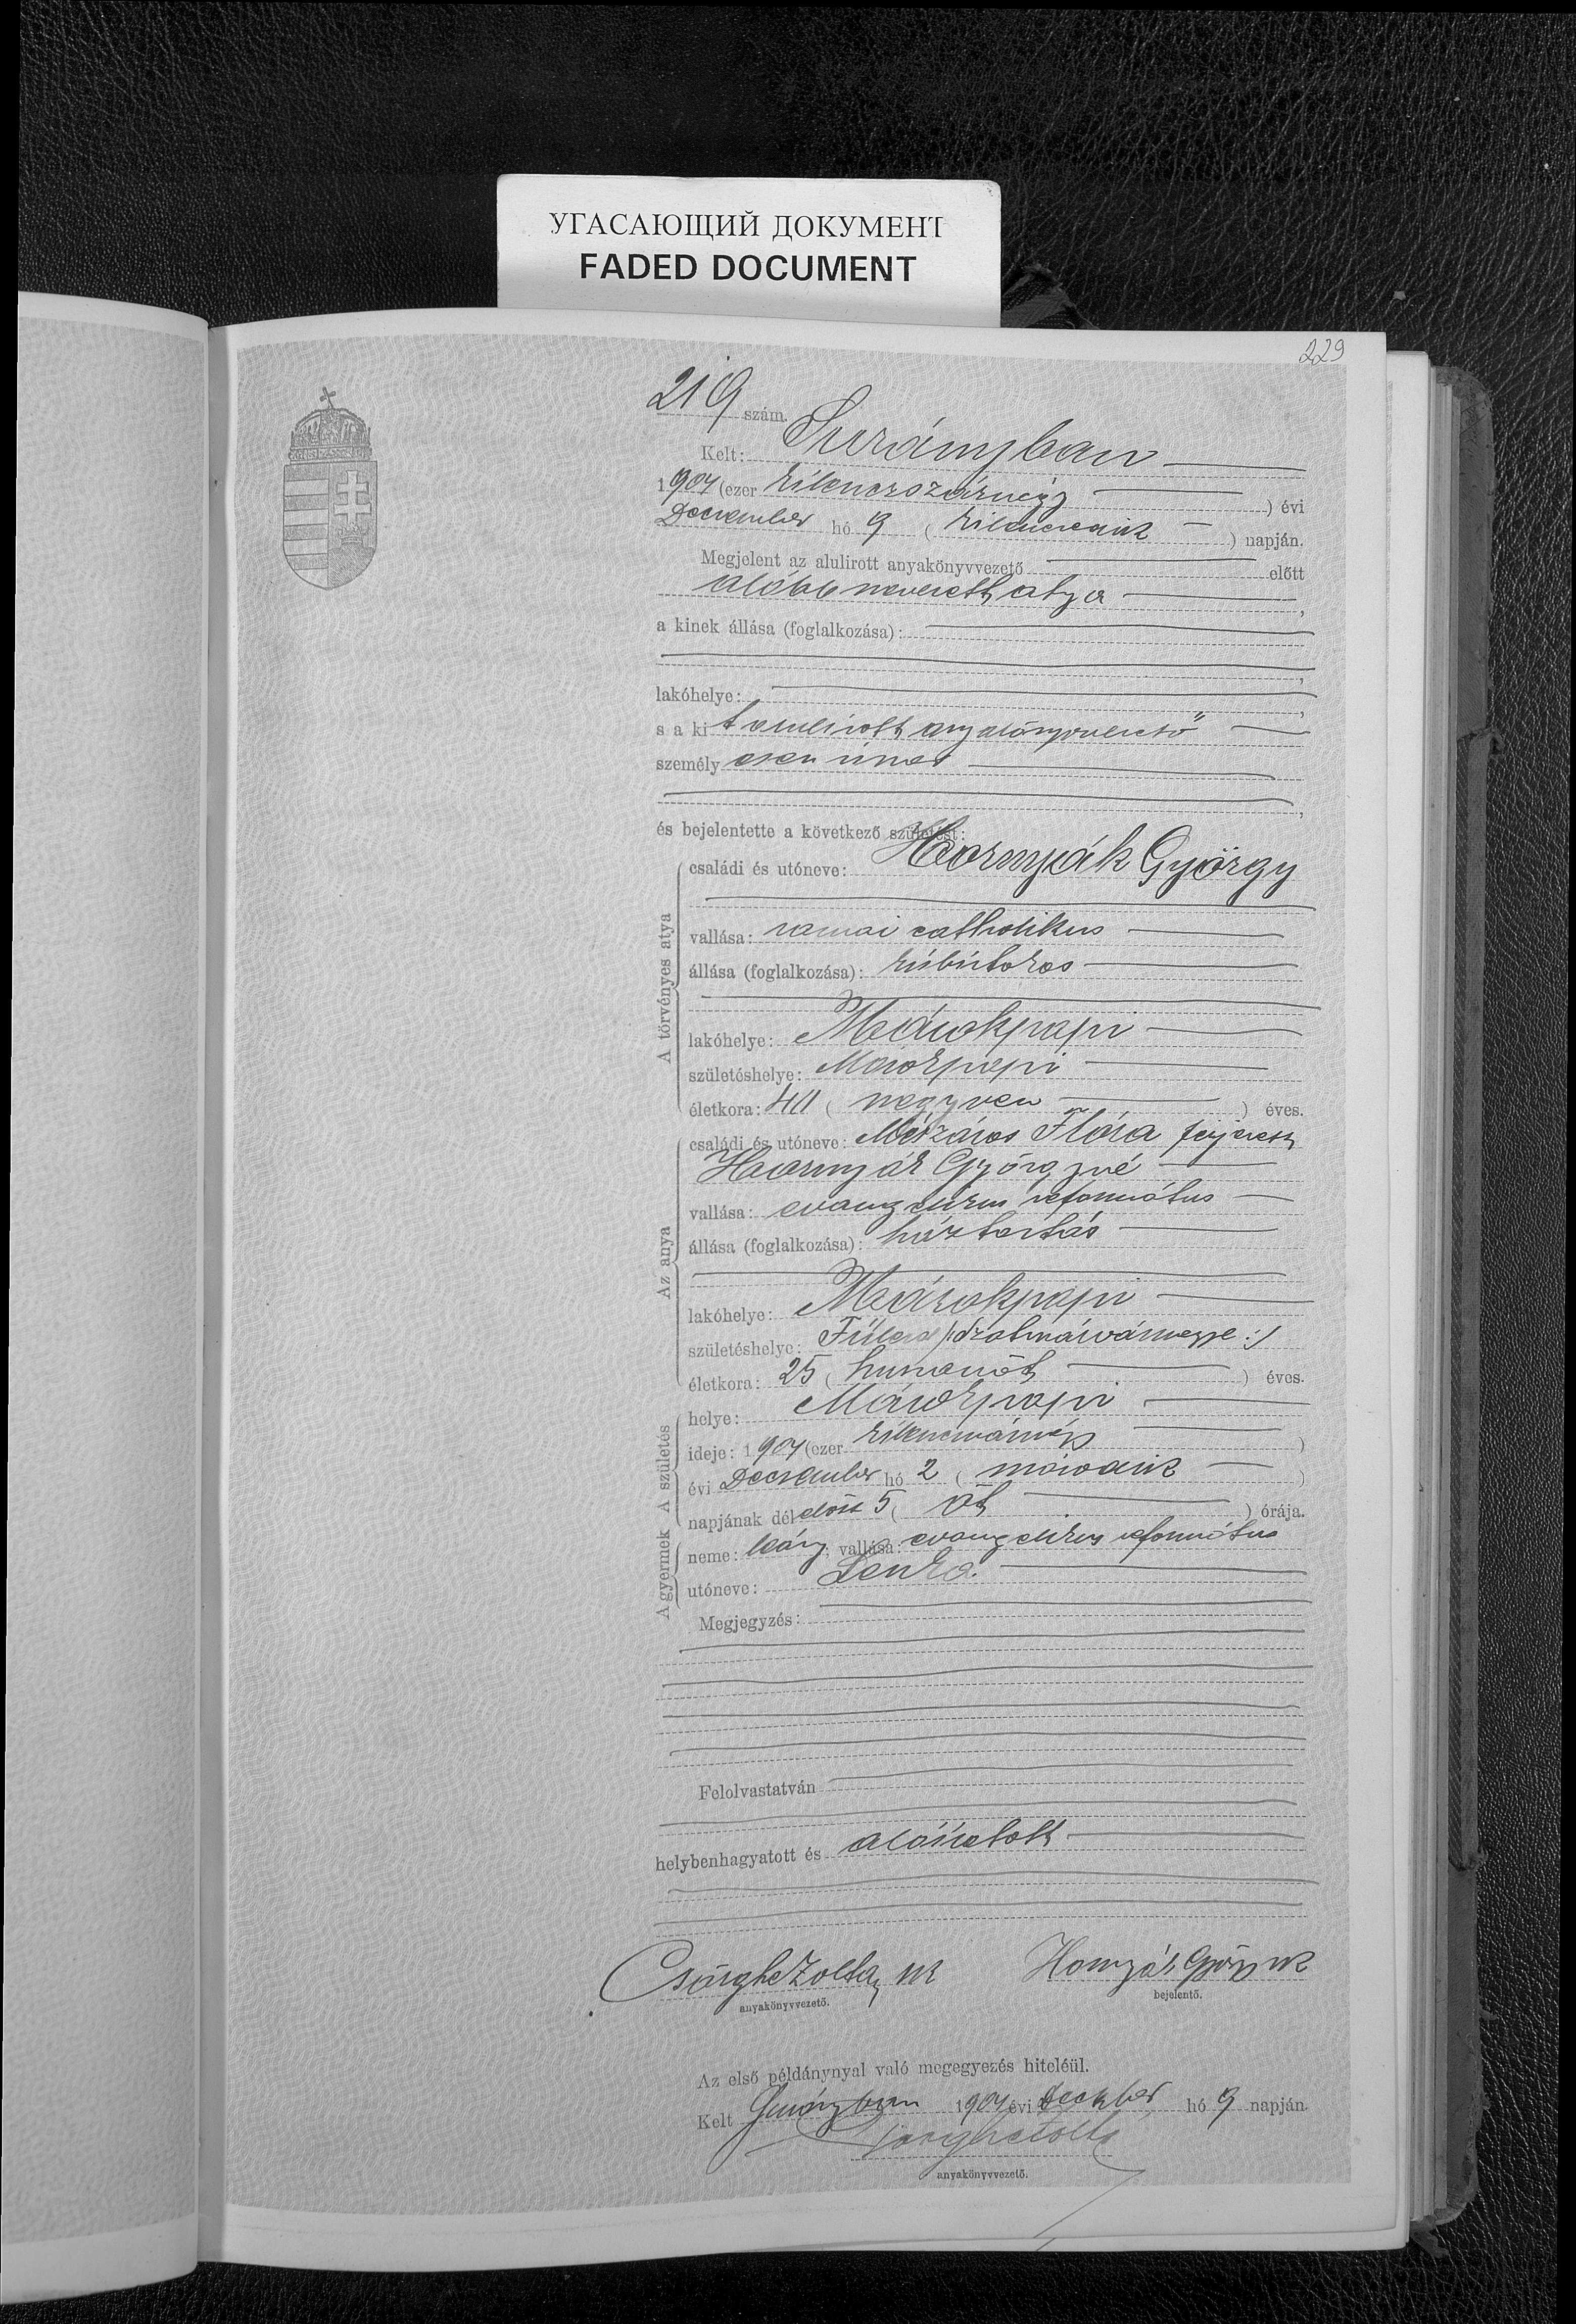 УГАСАЮЩИЙ ДОКУМЕНТ
FADED DOCUMENT
229
219 szám.
Kelt: Surányban
1904 (ezer kilencszáznégy ) évi
December hó 9 ( kilencedik ) napján.
Megjelent az alulirott anyakönyvvezető előtt
alább nevezett atya ,
a kinek állása (foglalkozása):
,
lakóhelye: ,
s a ki t alulirott anyakönyvvezető
személyesen ismer
,
és bejelentette a következő születést:
A törvényes atya
családi és utóneve: Hornyák György
vallása: romai catholikus
állása (foglalkozása): kisbirtokos
lakóhelye: Márokpapi
születéshelye: Márokpapi
életkora: 40 ( negyven ) éves.
Az anya
családi és utóneve: Mészáros Flóra férjezett
Hornyák Györgyné
vallása: evangelikus református
állása (foglalkozása): háztartás
lakóhelye: Márokpapi
születéshelye: /: Szatmárvármegye :/
életkora: 25 ( huszonöt ) éves.
A születés
helye: Márokpapi
ideje: 1904 (ezer kilencszáznégy )
évi December hó 2 ( második )
napjának délelőtt 5 ( öt ) órája.
A gyermek
neme: leány; vallása: evangelikus református
utóneve: Lenka
Megjegyzés:
Felolvastatván
helybenhagyatott és aláiratott
Csörghe Zoltán mk
anyakönyvvezető.
Hornyák György mk
bejelentő.
Az első példánynyal való megegyezés hiteléül.
Kelt Surányban 1904 évi December hó 9 napján.
anyakönyvvezető.